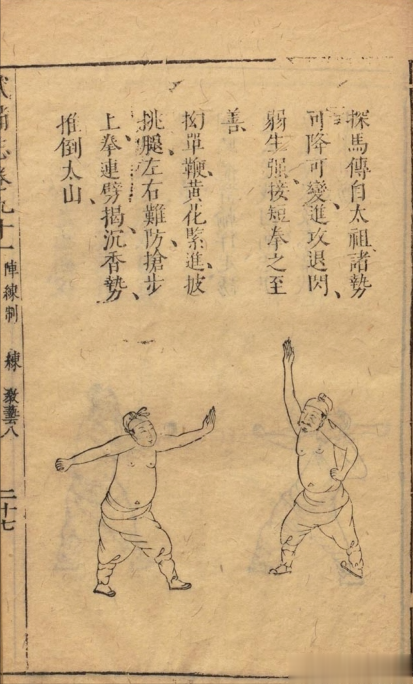 探馬傳自太祖諸勢
可降可變進攻退閃
弱生强接短拳之至
善
拗單鞭黃花緊進披
挑腿左右難防搶步
上拳連劈揭沉香勢
推倒太山
武備志卷九十一 陣練制 練 教藝八 二十七